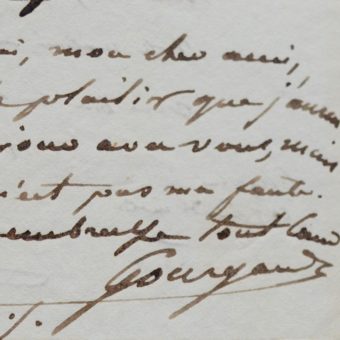 mon cher ami,
plaisir que j'aurai
avec vous, mais
n'est pas ma faute.
embrasse tout
Gourgaud